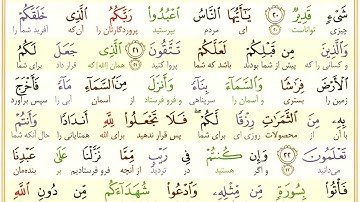 شَىْءٍ قَدِيرٌ ۝٢٠ يَـٰٓأَيُّهَا ٱلنَّاسُ ٱعْبُدُوا۟ رَبَّكُمُ ٱلَّذِى خَلَقَكُمْ
چیزی تواناست ای مردم بپرستید پروردگارتان را آن‌که آفرید شما را
وَٱلَّذِينَ مِن قَبْلِكُمْ لَعَلَّكُمْ تَتَّقُونَ ۝٢١ ٱلَّذِى جَعَلَ لَكُمُ
و کسانی را که پیش از شما بودند باشد که شما پروا کنید آن‌که قرار داد برای شما
ٱلْأَرْضَ فِرَٰشًا وَٱلسَّمَآءَ بِنَآءً وَأَنزَلَ مِنَ ٱلسَّمَآءِ مَآءً فَأَخْرَجَ
زمین را بستری و آسمان را سرپناهی و فرو فرستاد از آسمان آبی را پس برآورد
بِهِۦ مِنَ ٱلثَّمَرَٰتِ رِزْقًا لَّكُمْ فَلَا تَجْعَلُوا۟ لِلَّهِ أَندَادًا وَأَنتُمْ
با آن از محصولات روزی ای برای شما پس قرار ندهید برای الله همتایانی را حال آنکه شما
تَعْلَمُونَ ۝٢٢ وَإِن كُنتُمْ فِى رَيْبٍ مِّمَّا نَزَّلْنَا عَلَىٰ عَبْدِنَا
می‌دانید و اگر هستید در تردید از آنچه فرو فرستادیم بر بنده‌مان
فَأْتُوا۟ بِسُورَةٍ مِّن مِّثْلِهِۦ وَٱدْعُوا۟ شُهَدَآءَكُم مِّن دُونِ ٱللَّهِ